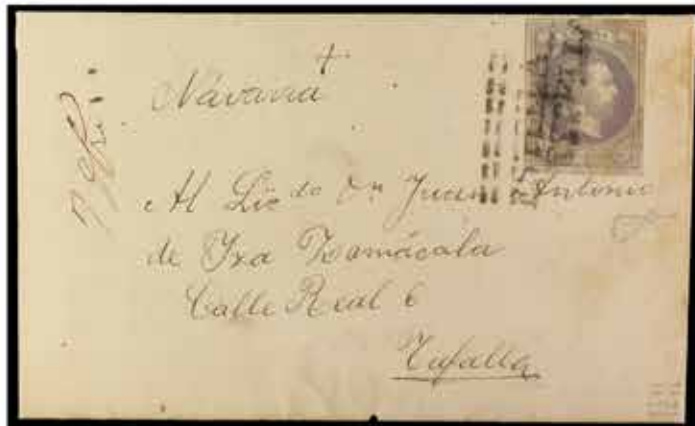 Navarra
Al Lic do Dn Juan Antonio
de Yza Zamácola
Calle Real 6
Tafalla